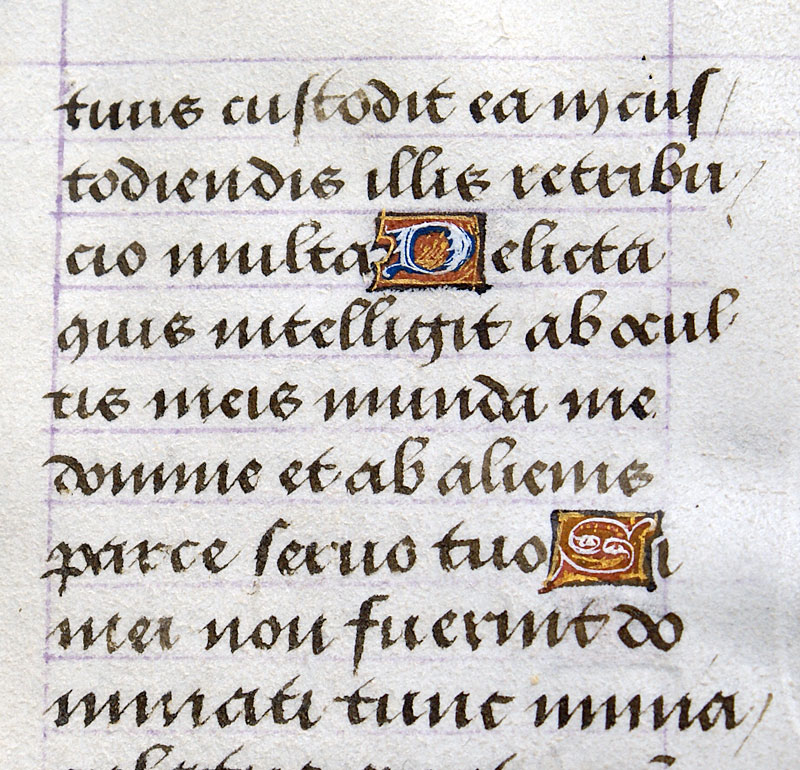 tuus custodit ea in cus/
todiendis illis retribu/
cio multa Delicta
quis intelligit ab ocul
tis meis munda me
domine et ab alienis
parce servo tuo Si
mei non fuerint do
minati tunc inma/